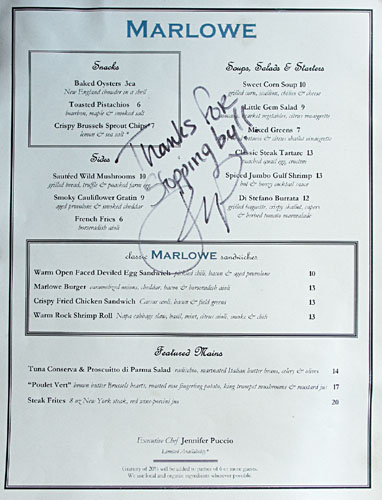 MARLOWE
Snacks
Baked Oysters 3ea
New England chowder in a shell
Toasted Pistachios 6
bourbon, maple & smoked salt
Crispy Brussels Sprout Chips 7
lemon & sea salt
Sides
Sautéed Wild Mushrooms 10
grilled bread, truffle & poached farm egg
Smoky Cauliflower Gratin 9
aged provolone & smoked cheddar
French Fries 6
horseradish aioli
Soups, Salads & Starters
Sweet Corn Soup 10
grilled corn, scallion, chilies & cheese
Little Gem Salad 9
market vegetables, citrus vinaigrette
Mixed Greens 7
& citrus shallot vinaigrette
Classic Steak Tartare 13
poached quail egg, croutons
Spiced Jumbo Gulf Shrimp 13
hot & boozy cocktail sauce
Di Stefano Burrata 12
grilled baguette, crispy shallot, capers
& burned tomato marmalade
Thanks for
stopping by!
classic MARLOWE sandwiches
Warm Open Faced Deviled Egg Sandwich pickled chili, bacon & aged provolone 10
Marlowe Burger caramelized onions, cheddar, bacon & horseradish aioli 13
Crispy Fried Chicken Sandwich Caesar aioli, bacon & field greens 13
Warm Rock Shrimp Roll Napa cabbage slaw, basil, mint, citrus aioli, snaks & chili 13
Featured Mains
Tuna Conserva & Proscuitto di Parma Salad radicchio, marinated Italian butter beans, celery & olives 14
"Poulet Vert" lemon butter Brussels hearts, roasted new fingerling potato, king trumpet mushrooms & mustard jus 17
Steak Frites 8 oz New York steak, red wine porcini jus 20
Executive Chef Jennifer Puccio
Limited Availability*
Gratuity of 20% will be added to parties of 6 or more guests.
We use local and organic ingredients whenever possible.